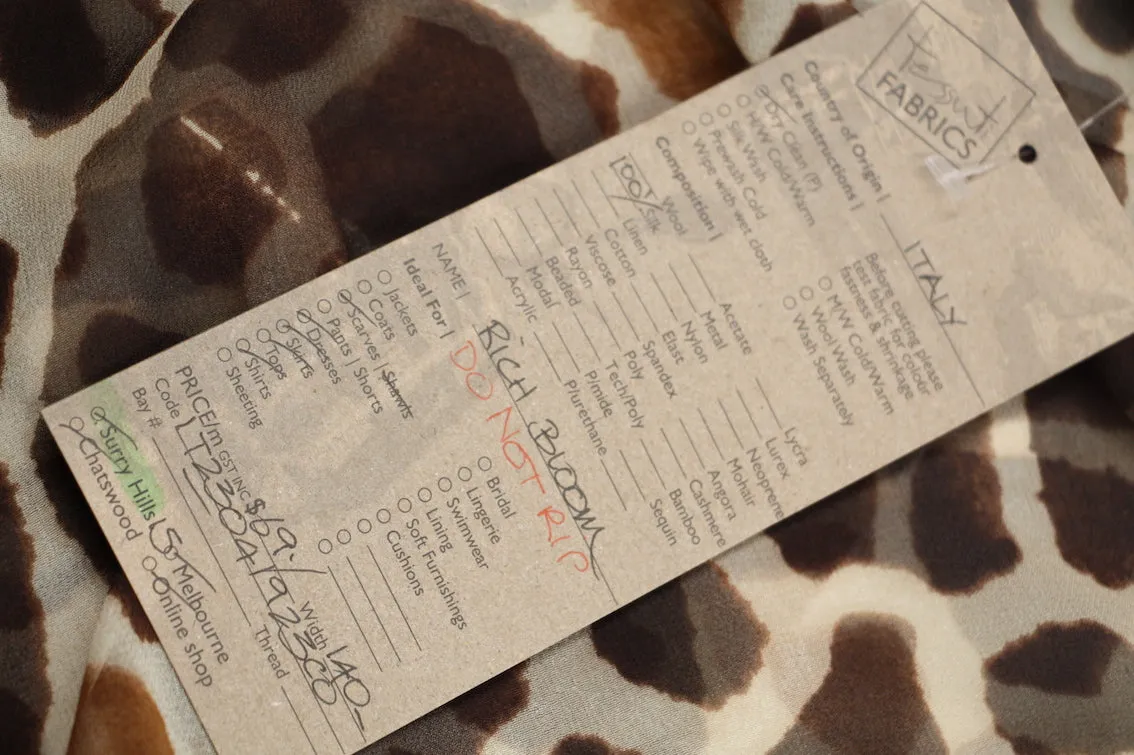 Tessuti
FABRICS
Country of Origin | ITALY
Care Instructions |
Before cutting please
test fabric for colour
fastness & shrinkage
Dry Clean (P)
H/W Cold/Warm
Silk Wash
Prewash Cold
Wipe with wet cloth
M/W Cold/Warm
Wool Wash
Wash Separately
Composition |
Wool
100% Silk
Linen
Cotton
Viscose
Rayon
Beaded
Modal
Acrylic
Acetate
Metal
Nylon
Elast
Spandex
Poly
Tech/Poly
P/mide
P/urethane
Lycra
Lurex
Neoprene
Mohair
Angora
Cashmere
Bamboo
Sequin
NAME | RICH BLOOM
DO NOT RIP
Ideal For |
Jackets
Coats
Scarves | Shawls
Pants | Shorts
Dresses
Skirts
Tops
Shirts
Sheeting
Bridal
Lingerie
Swimwear
Lining
Soft Furnishings
Cushions
PRICE/m GST INC $69./ Width 140
Code LT2304/92300
Bay # 150 Thread
Surry Hills Melbourne
Chatswood Online shop